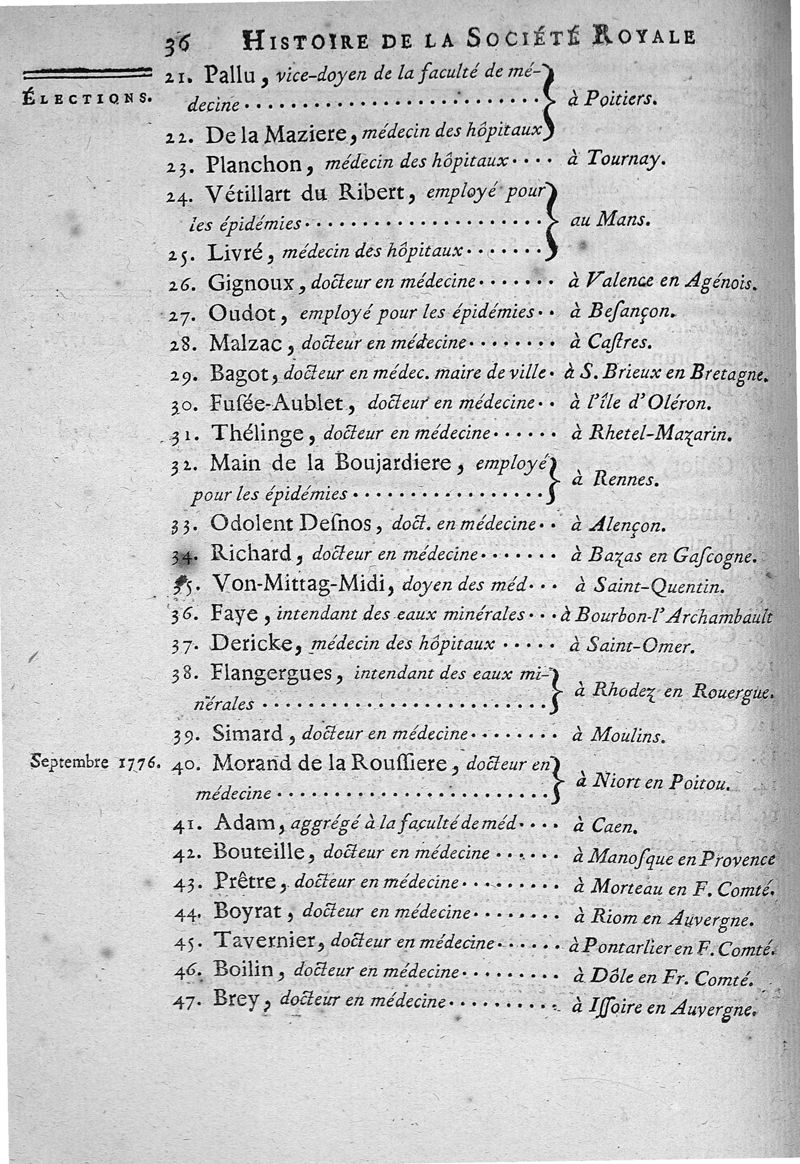 36 HISTOIRE DE LA SOCIÉTÉ ROYALE
ÉLECTIONS.
21. Pallu, vice-doyen de la faculté de mé-
decine . . . . . . . . . . . . . . . . . . . . . . . . . . } à Poitiers.
22. De la Maziere, médecin des hôpitaux
23. Planchon, médecin des hôpitaux . . . . à Tournay.
24. Vétillart du Ribert, employé pour
les épidémies . . . . . . . . . . . . . . . . . . . . . } au Mans.
25. Livré, médecin des hôpitaux . . . . . . .
26. Gignoux, docteur en médecine . . . . . . . à Valence en Agénois.
27. Oudot, employé pour les épidémies . . à Beſançon.
28. Malzac, docteur en médecine . . . . . . . . à Caſtres.
29. Bagot, docteur en médec. maire de ville . à S. Brieux en Bretagne.
30. Fuſée-Aublet, docteur en médecine . . à l'île d'Oléron.
31. Thélinge, docteur en médecine . . . . . . à Rhetel-Mazarin.
32. Main de la Boujardiere, employé
pour les épidémies . . . . . . . . . . . . . . . . . . } à Rennes.
33. Odolent Deſnos, doct. en médecine . . à Alençon.
34. Richard, docteur en médecine . . . . . . . à Bazas en Gaſcogne.
35. Von-Mittag-Midi, doyen des méd . . . à Saint-Quentin.
36. Faye, intendant des eaux minérales . . . à Bourbon-l'Archambault
37. Dericke, médecin des hôpitaux . . . . . à Saint-Omer.
38. Flangergues, intendant des eaux mi-
nérales . . . . . . . . . . . . . . . . . . . . . . . . . . } à Rhodez en Rouergue.
39. Simard, docteur en médecine . . . . . . . . à Moulins.
Septembre 1776. 40. Morand de la Rouſſiere, docteur en
médecine . . . . . . . . . . . . . . . . . . . . . . . . } à Niort en Poitou.
41. Adam, aggrégé à la faculté de méd . . . . à Caen.
42. Bouteille, docteur en médecine . . . . . . à Manoſque en Provence
43. Prêtre, docteur en médecine . . . . . . . . . à Morteau en F. Comté.
44. Boyrat, docteur en médecine . . . . . . . . à Riom en Auvergne.
45. Tavernier, docteur en médecine . . . . . . à Pontarlier en F. Comté.
46. Boilin, docteur en médecine . . . . . . . . . à Dôle en Fr. Comté.
47. Brey, docteur en médecine . . . . . . . . . . à Iſſoire en Auvergne.